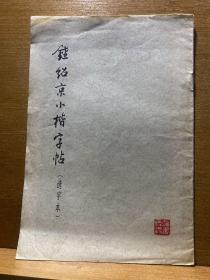 鍾绍京小楷字帖
（选字本）